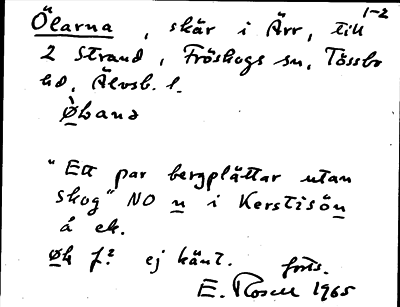 1-2
Ölarna, skär i Ärr, till
2 Strand, Fröskogs sn, Tössbo
hd, Älvsb. l.
"Ett par bergplättar utan
skog" NO n i Kerstisön
å ek.
øk f? ej känt. forts.
E. Rosell 1965